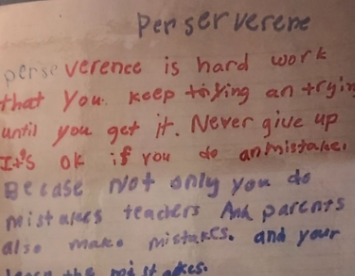 Perserverene
perseverence is hard work
that you keep trying an trying
until you get it. Never give up
It's ok if you do an mistake.
Becase Not only you do
mistakes teachers And parents
also make mistakes. and your
learn the mistakes.